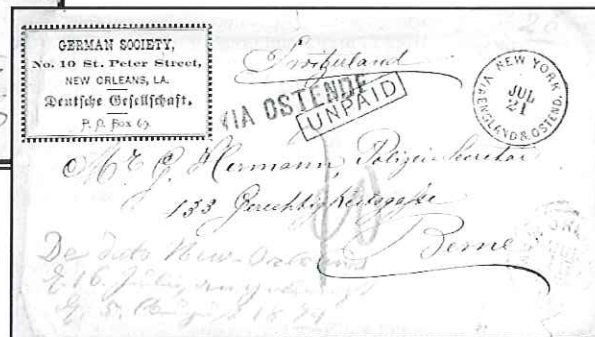 GERMAN SOCIETY,
No. 10 St. Peter Street,
NEW ORLEANS, LA.
Deutsche Gesellschaft.
P. O. Box 67
Switzerland
VIA OSTENDE
UNPAID
NEW YORK
JUL
21
VIA ENGLAND & OSTEND.
Mr. G. Hermann, Polizei
133 Gerechtigkeitsgasse
Berne
De dato New-Orleans
16. Juli